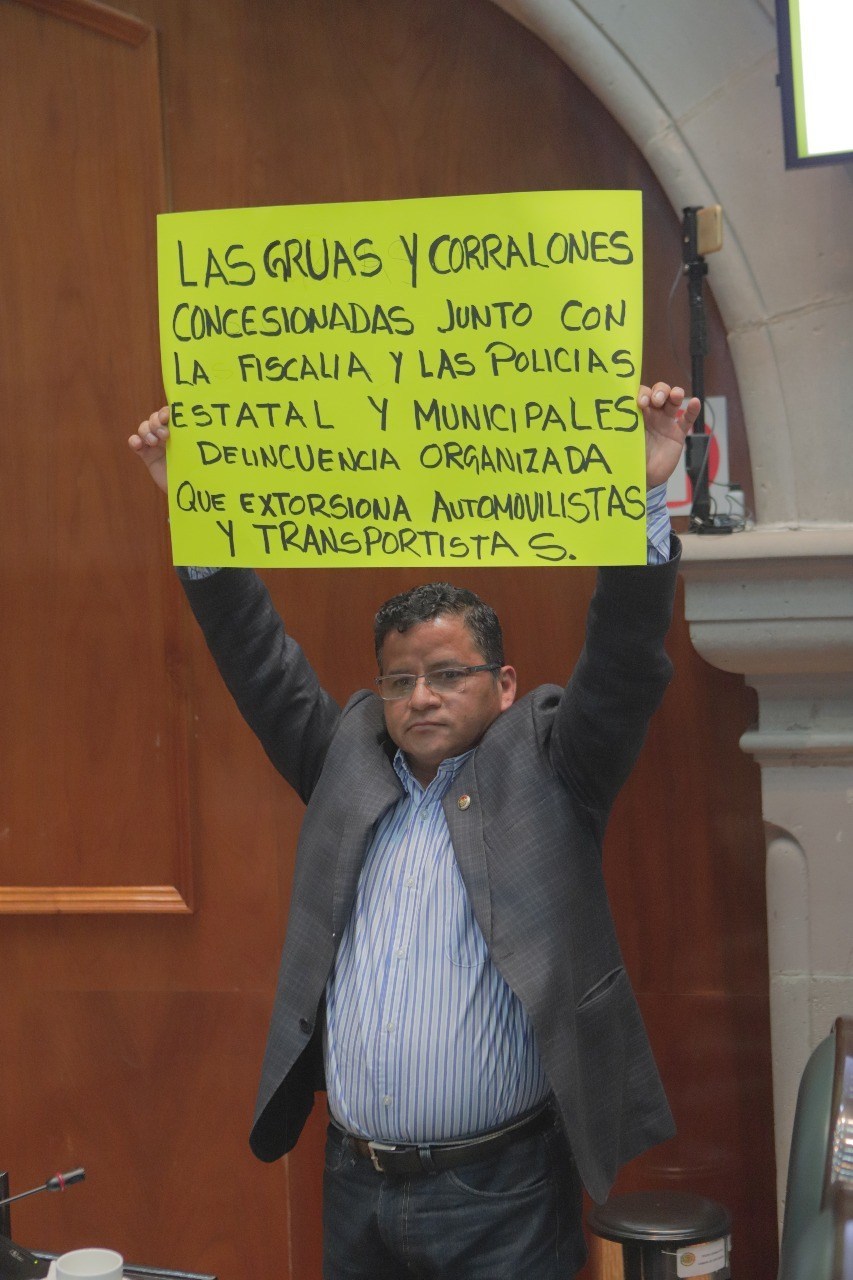 LAS GRUAS Y CORRALONES
CONCESIONADAS JUNTO CON
LA FISCALIA Y LAS POLICIAS
ESTATAL Y MUNICIPALES
DELINCUENCIA ORGANIZADA
QUE EXTORSIONA AUTOMOVILISTAS
Y TRANSPORTISTAS.